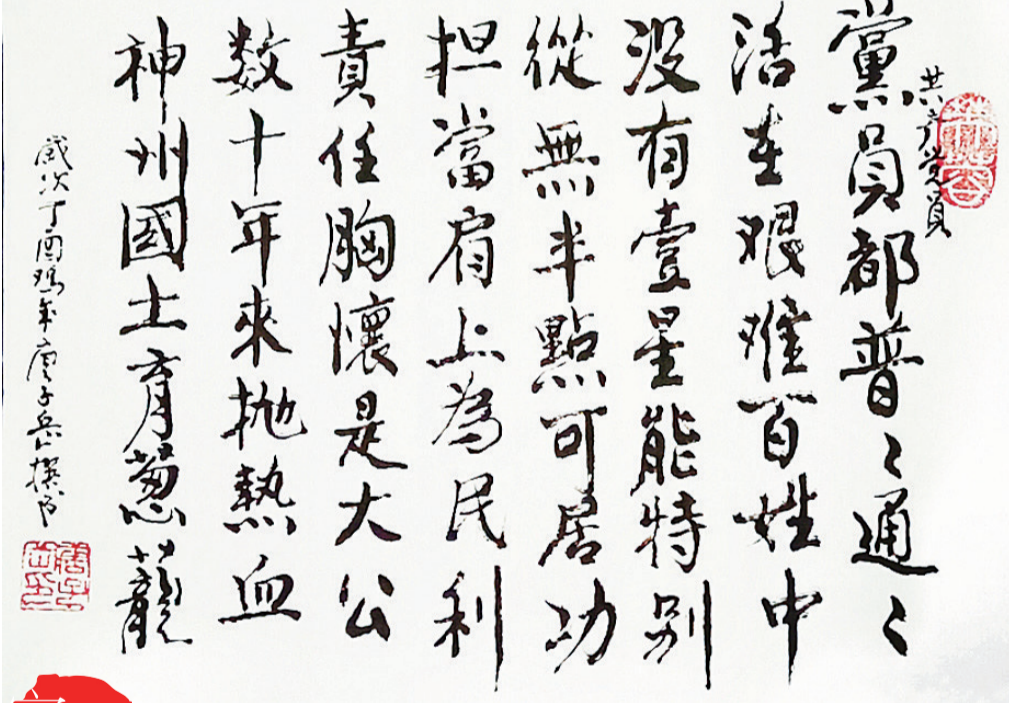 共产党员
黨員都普〻通〻
活在艰难百姓中
没有壹星能特别
從無半點可居功
担當肩上為民利
責任胸懷是大公
数十年來抛熱血
神州國土育葱蘢
歲次丁酉鸡年唐子兵撰书